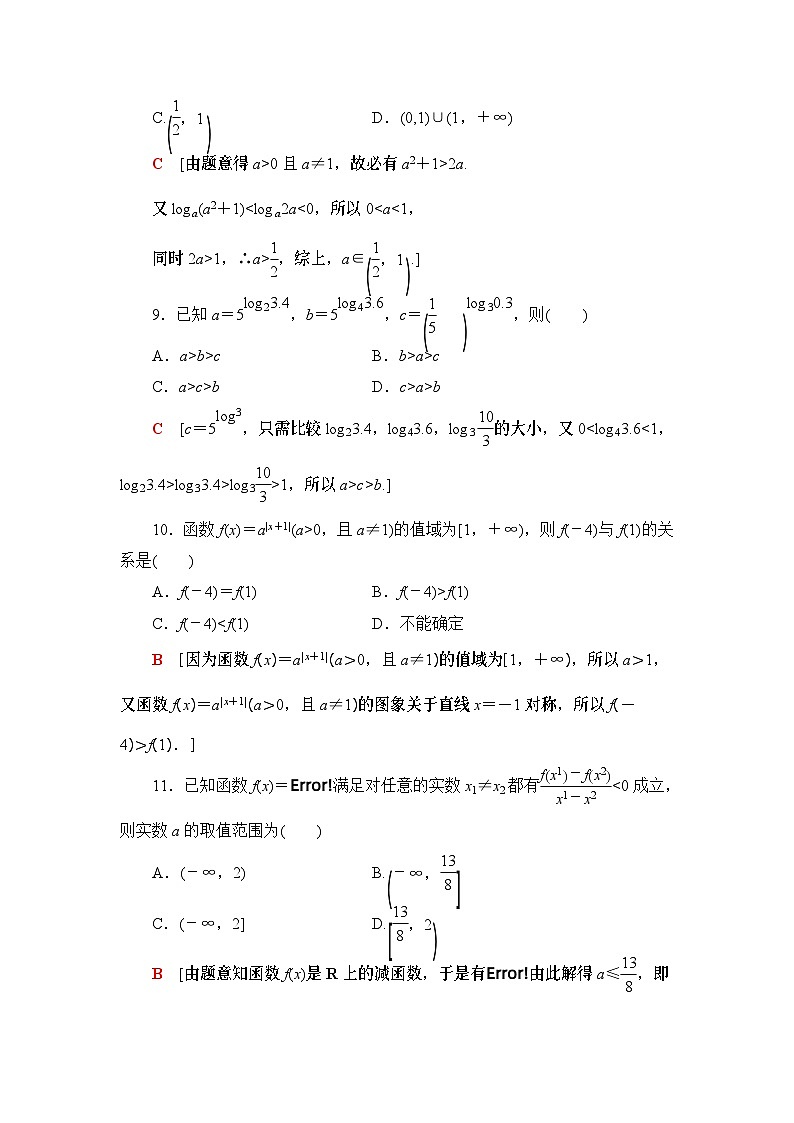 C.(1/2，1)　D．(0,1)∪(1，＋∞)
C　[由题意得 a>0 且 a≠1，故必有 a²＋1>2a.
又 logₐ(a²＋1)<logₐ2a<0，所以 0<a<1，
同时 2a>1，∴a>1/2，综上，a∈(1/2，1).]
9．已知 a＝5^(log₂3.4)，b＝5^(log₄3.6)，c＝(1/5)^(log₃0.3)，则(　　)
A．a>b>c　B．b>a>c
C．a>c>b　D．c>a>b
C　[c＝5^(log3)，只需比较 log₂3.4，log₄3.6，log₃10/3的大小，又 0<log₄3.6<1，
log₂3.4>log₃3.4>log₃10/3>1，所以 a>c>b.]
10．函数 f(x)＝a^|x＋1|(a>0，且 a≠1)的值域为[1，＋∞)，则 f(－4)与 f(1)的关
系是(　　)
A．f(－4)＝f(1)　B．f(－4)>f(1)
C．f(－4)<f(1)　D．不能确定
B　[因为函数 f(x)＝a^|x＋1|(a>0，且 a≠1)的值域为[1，＋∞)，所以 a>1，
又函数 f(x)＝a^|x＋1|(a>0，且 a≠1)的图象关于直线 x＝－1 对称，所以 f(－
4)>f(1)．]
11．已知函数 f(x)＝Error!满足对任意的实数 x₁≠x₂都有(f(x¹)－f(x²))/(x¹－x²)<0 成立，
则实数 a 的取值范围为(　　)
A．(－∞，2)　B.(－∞，13/8]
C．(－∞，2]　D.[13/8，2)
B　[由题意知函数 f(x)是 R 上的减函数，于是有Error!由此解得 a≤13/8，即